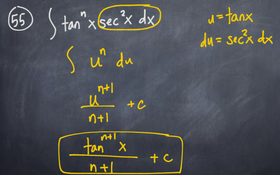 55 ∫ tanⁿ x sec² x dx
u = tanx
du = sec² x dx
∫ uⁿ du
uⁿ⁺¹/n+1 + c
tanⁿ⁺¹ x/n+1 + c